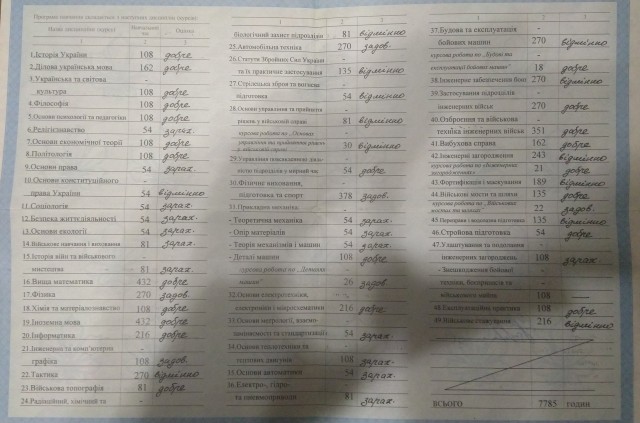 Програма навчання складається з наступних
Назва дисципліни
Оцінка
1.Історія України 108 добре
2.Ділова українська мова 162 добре
3.Українська та світова -
культура 108 добре
4.Філософія 108 добре
5.Основи психології та педагогіки 108 добре
6.Релігієзнавство 54 зарах.
7.Основи економічної теорії 108 добре
8.Політологія 108 добре
9.Основи права 54 зарах.
10.Основи конституційного -
права України 54 відмінно
11.Соціологія 54 зарах.
12.Безпека життєдіяльності 54 зарах.
13.Основи екології 54 зарах.
14.Військове навчання і виховання 81 зарах.
15.Історія війн та військового -
мистецтва 81 зарах.
16.Вища математика 432 добре
17.Фізика 270 задов.
18.Хімія та матеріалознавство 108 добре
19.Іноземна мова 432 добре
20.Інформатика 216 добре
21.Інженерна та комп'ютерна
графіка 108 задов.
22.Тактика 270 відмінно
23.Військова топографія 81 добре
24.Радіаційний, хімічний та -
1 2 3
біологічний захист підрозділів 81 відмінно
25.Автомобільна техніка 270 задов.
26.Статути Збройних Сил України -
та їх практичне застосування 135 відмінно
27.Стрілецька зброя та вогнева -
підготовка 54 відмінно
28.Основи управління та прийняття -
рішень у військовій справі 81 відмінно
курсова робота по „Основи -
управління та прийняття рішень у військовій справі 30 відмінно
29.Управління повсякденною діяль-
ністю підрозділу у мирний час 54 добре
30.Фізичне виховання, -
підготовка та спорт 378 задов.
31.Прикладна механіка, -
- Теоретична механіка 54 зарах.
- Опір матеріалів 54 зарах.
- Теорія механізмів і машин 54 зарах.
- Деталі машин 108 добре
курсова робота по „Деталям -
машин" 26 задов
32.Основи електротехніки, -
електроніки і мікросхемотехніки 216 добре
33.Основи метрології, взаємо- -
замінності та стандартизації 54 зарах.
34.Основи теплотехніки та -
теплових двигунів 108 зарах.
35.Основи автоматики 54 зарах.
36.Електро-, гідро- -
та пневмоприводи 81 зарах.
1 2 3
37.Будова та експлуатація -
бойових машин 270 відмінно
курсова робота по „Будові та -
експлуатації бойових машин" 18 добре
38.Інженерне забезпечення бою 270 відмінно
39.Застосування підрозділів -
інженерних військ 270 добре
40.Озброєння та військова -
техніка інженерних військ 351 добре
41.Вибухова справа 162 добре
42.Інженерні загородження 243 відмінно
курсова робота по 21 добре
43.Фортифікація і маскування 189 відмінно
44.Військові мости та шляхи 135 добре
курсова робота по „Військових мостах та шляхах" 22 задов
45.Переправи і водолазна підготовка 135 відмінно
46.Стройова підготовка 54 добре
47.Улаштування та подолання -
інженерних загороджень 108 зарах.
бойової -
техніки, боєприпасів та -
військового майна 108
48.Експлуатаційна практика 108 добре
49.Військове стажування 216 відмінно
ВСЬОГО 7785 годин